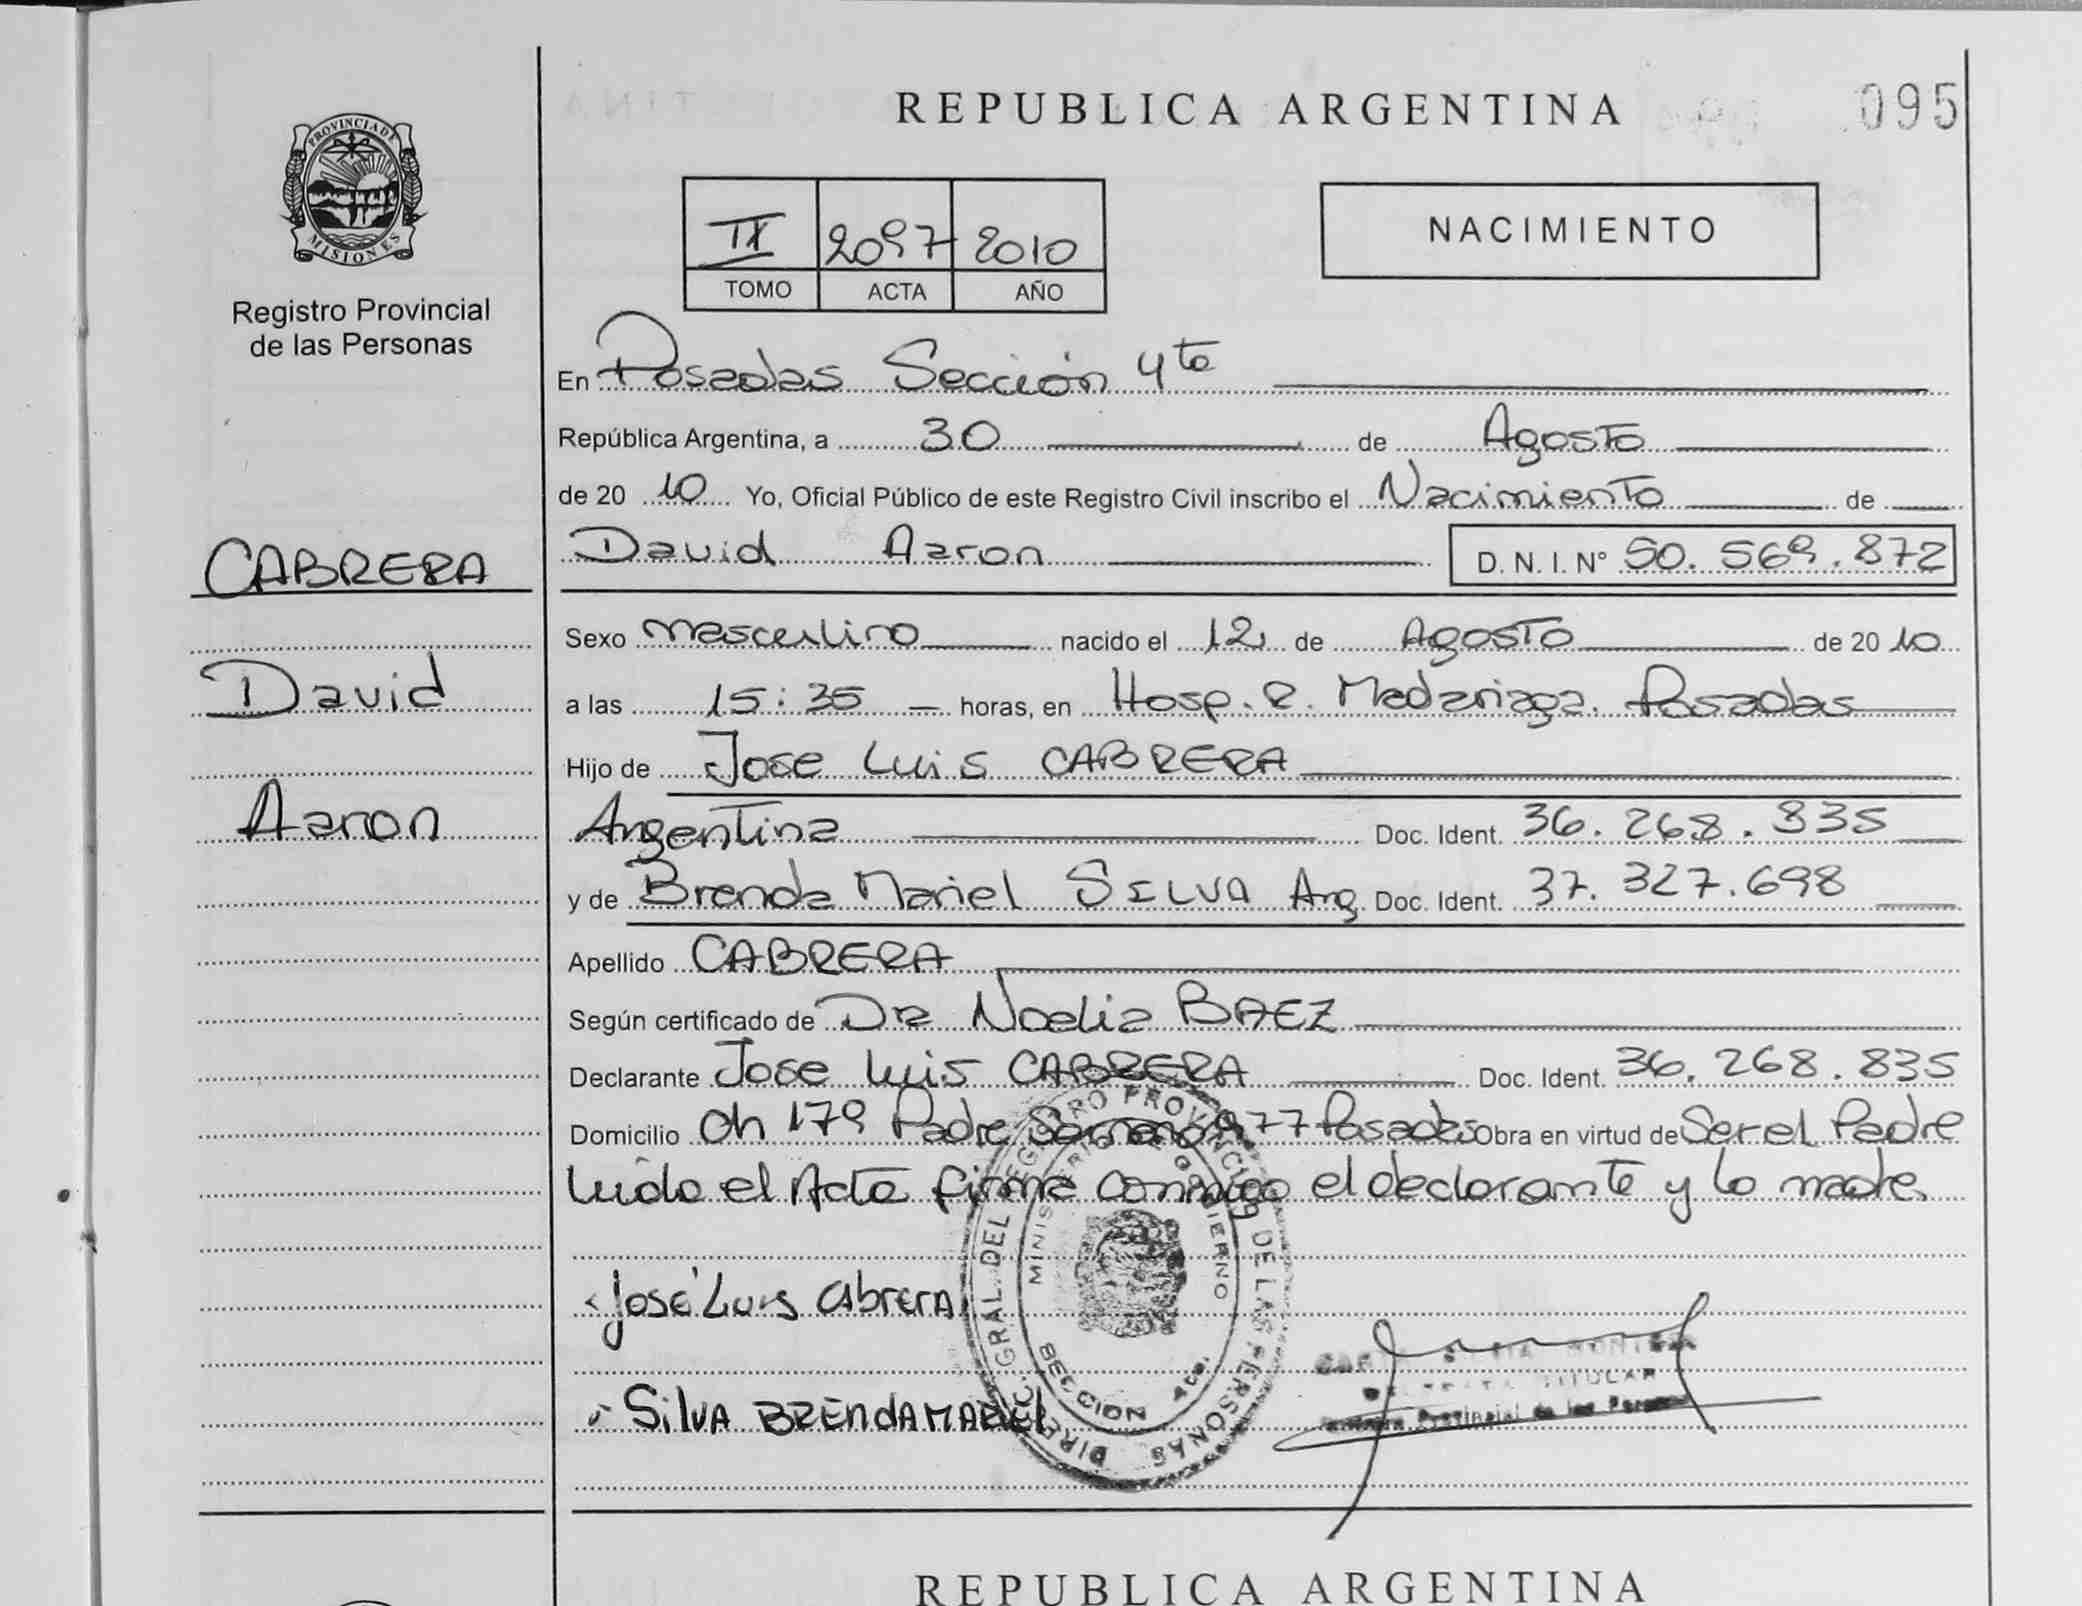 REPUBLICA ARGENTINA
095
PROVINCIA DE
MISIONES
Registro Provincial
de las Personas
IX 2097 2010
TOMO ACTA AÑO
NACIMIENTO
En Posadas Sección 4ta
República Argentina, a 30 de Agosto
de 20 10 Yo, Oficial Público de este Registro Civil inscribo el Nacimiento de
David Aaron D. N. I. Nº 50.569.872
CABRERA
David
Aaron
Sexo masculino nacido el 12 de Agosto de 20 10
a las 15:35 horas, en Hosp. R. Madariaga. Posadas
Hijo de Jose Luis CABRERA
Argentina Doc. Ident. 36.268.835
y de Brenda Mariel SILVA Arg. Doc. Ident. 37.327.698
Apellido CABRERA
Según certificado de Dra Noelia BAEZ
Declarante Jose Luis CABRERA Doc. Ident. 36.268.835
Domicilio Ch 179 Padre 77 Posadas Obra en virtud de Ser el Padre
Leida el Acta firma conmigo el declarante y la madre
José Luis Cabrera
Silva BRENDA MARIEL
DIREC. GRAL. DEL REGISTRO PROVINCIAL DE LAS PERSONAS
MINISTERIO DE GOBIERNO
SECCION 4ta.
TITULAR
Provincial de las
REPUBLICA ARGENTINA